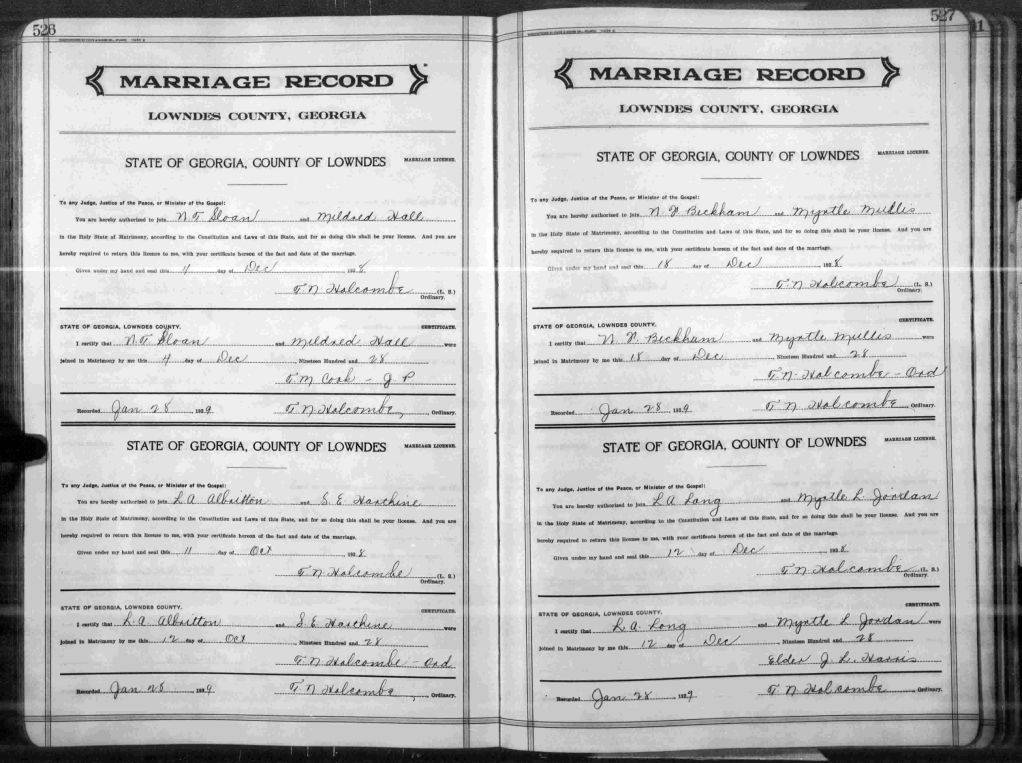 526
MARRIAGE RECORD
LOWNDES COUNTY, GEORGIA
STATE OF GEORGIA, COUNTY OF LOWNDES MARRIAGE LICENSE.
To any Judge, Justice of the Peace, or Minister of the Gospel:
You are hereby authorized to join N. T. Sloan and Mildred Hall
in the Holy State of Matrimony, according to the Constitution and Laws of this State, and for so doing this shall be your license. And you are
hereby required to return this license to me, with your certificate hereon of the fact and date of the marriage.
Given under my hand and seal this 4 day of Dec 1928
T. N. Holcombe (L. S.)
Ordinary.
STATE OF GEORGIA, LOWNDES COUNTY. CERTIFICATE.
I certify that N. T. Sloan and Mildred Hall were
joined in Matrimony by me this 4 day of Dec, Nineteen Hundred and 28
T. M. Cook - J P
Recorded Jan 28 1929 T. N. Holcombe, Ordinary.
STATE OF GEORGIA, COUNTY OF LOWNDES MARRIAGE LICENSE.
To any Judge, Justice of the Peace, or Minister of the Gospel:
You are hereby authorized to join L. A. Albritton and S. E. Haschine
in the Holy State of Matrimony, according to the Constitution and Laws of this State, and for so doing this shall be your license. And you are
hereby required to return this license to me, with your certificate hereon of the fact and date of the marriage.
Given under my hand and seal this 11 day of Oct, 1928
T. N. Holcombe (L. S.)
Ordinary.
STATE OF GEORGIA, LOWNDES COUNTY. CERTIFICATE.
I certify that L. A. Albritton and S. E. Haschine were
joined in Matrimony by me this 12 day of Oct, Nineteen Hundred and 28
T. N. Holcombe - Ord
Recorded Jan 28 1929 T. N. Holcombe, Ordinary.
527
MARRIAGE RECORD
LOWNDES COUNTY, GEORGIA
STATE OF GEORGIA, COUNTY OF LOWNDES MARRIAGE LICENSE.
To any Judge, Justice of the Peace, or Minister of the Gospel:
You are hereby authorized to join N. V. Beckham and Myrtle Mullis
in the Holy State of Matrimony, according to the Constitution and Laws of this State, and for so doing this shall be your license. And you are
hereby required to return this license to me, with your certificate hereon of the fact and date of the marriage.
Given under my hand and seal this 18 day of Dec 1928
T. N. Holcombe (L. S.)
Ordinary.
STATE OF GEORGIA, LOWNDES COUNTY. CERTIFICATE.
I certify that N. V. Beckham and Myrtle Mullis were
joined in Matrimony by me this 18 day of Dec, Nineteen Hundred and 28
T. N. Holcombe - Ord
Recorded Jan 28 1929 T. N. Holcombe, Ordinary.
STATE OF GEORGIA, COUNTY OF LOWNDES MARRIAGE LICENSE.
To any Judge, Justice of the Peace, or Minister of the Gospel:
You are hereby authorized to join L. A. Long and Myrtle L. Jordan
in the Holy State of Matrimony, according to the Constitution and Laws of this State, and for so doing this shall be your license. And you are
hereby required to return this license to me, with your certificate hereon of the fact and date of the marriage.
Given under my hand and seal this 12 day of Dec, 1928
T. N. Holcombe (L. S.)
Ordinary.
STATE OF GEORGIA, LOWNDES COUNTY. CERTIFICATE.
I certify that L. A. Long and Myrtle L. Jordan were
joined in Matrimony by me this 12 day of Dec, Nineteen Hundred and 28
Elder J. L. Harris
Recorded Jan 28 1929 T. N. Holcombe, Ordinary.